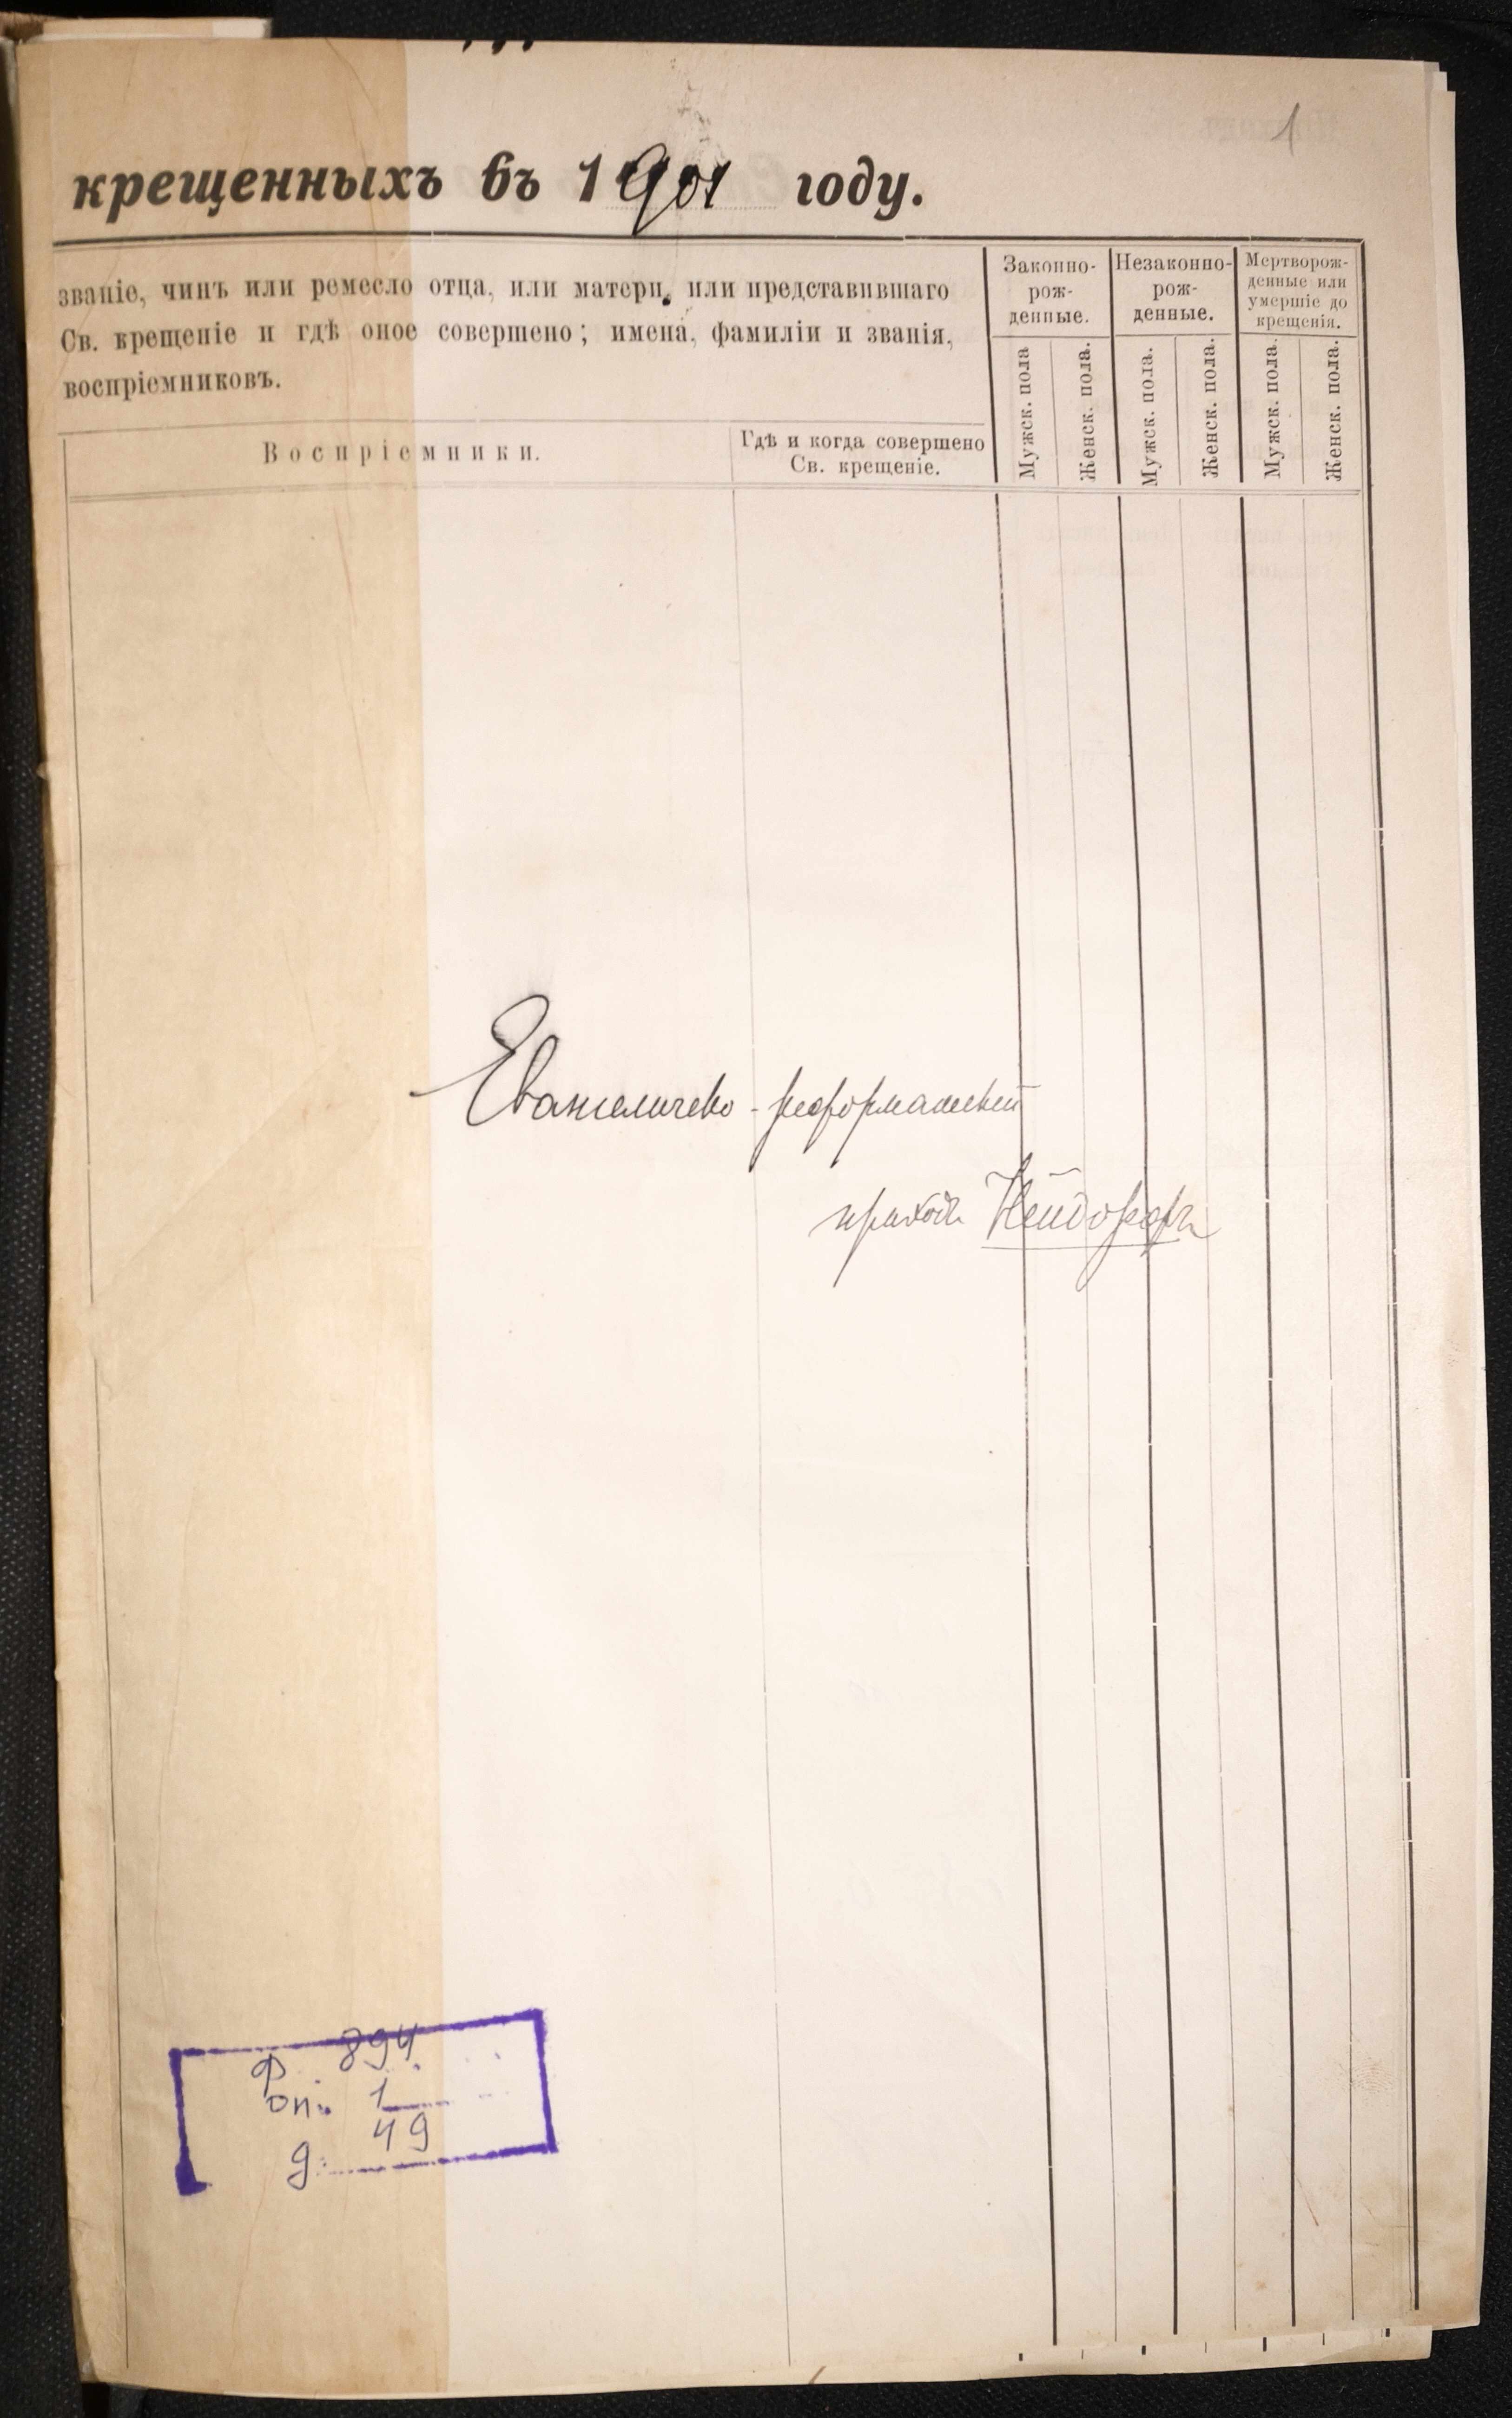 1
крещенныхъ въ 1901 году.
званіе, чинъ или ремесло отца, или матери, или представившаго
Св. крещеніе и гдѣ оное совершено; имена, фамиліи и званія,
воспріемниковъ.
Воспріемники.
Гдѣ и когда совершено
Св. крещеніе.
Законно-
рож-
денные.
Незаконно-
рож-
денные.
Мертворож-
денные или
умершіе до
крещенія.
Мужск. пола
Женск. пола.
Мужск. пола.
Женск. пола.
Мужск. пола.
Женск. пола.
Евангелическо-реформатскій
приходъ Нейдорфъ
Ф. 894
оп. 1
д. 49